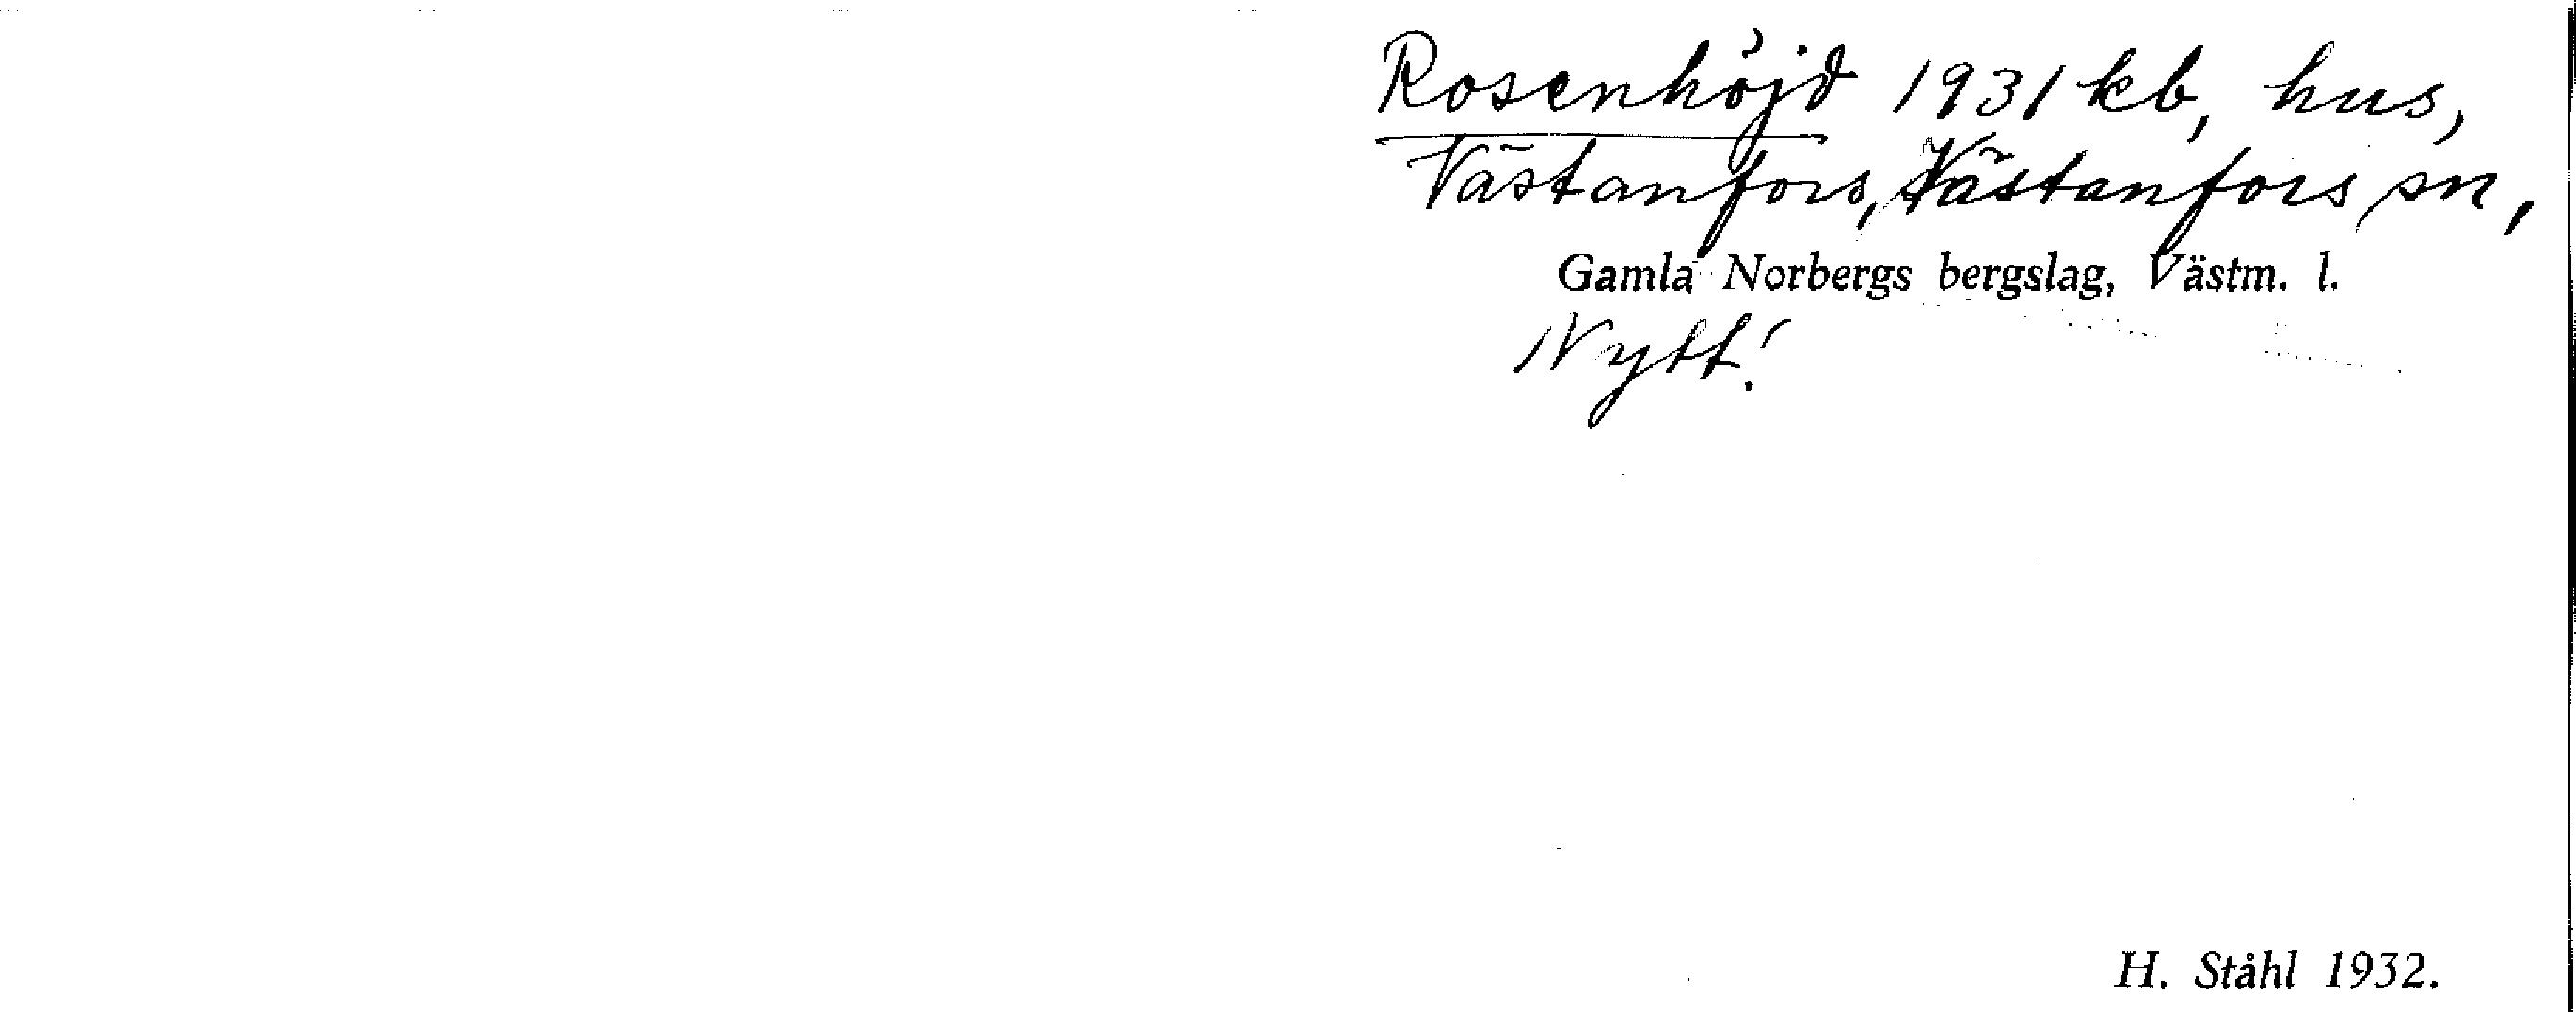 Rosenhöjd 1931 kb, hus,
Västanfors, Västanfors sn,
Gamla Norbergs bergslag, Västm. l.
Nytt!
H. Ståhl 1932.